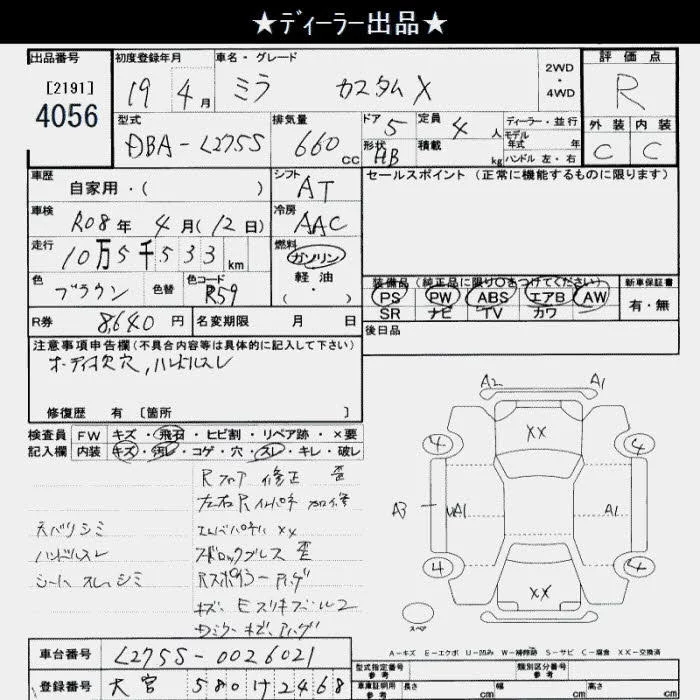 ★ディーラー出品★
出品番号
[2191]
4056
初度登録年月
19 4月
車名・グレード
ミラ カスタムX
2WD
・
4WD
評価点
R
外装 内装
C C
型式
DBA-L275S
排気量
660cc
ドア 5
形状 HB
定員 4人
積載 kg
ディーラー・並行
モデル年式 年
ハンドル 左・右
車歴
自家用・( )
シフト
AT
セールスポイント(正常に機能するものに限ります)
車検
R08年 4月(12日)
冷房
AAC
走行
10万5千533km
燃料
ガソリン
・
軽油
・
( )
色
ブラウン
色替
色コード
R59
装備品(純正品に限り○をつけてください)
PS PW ABS エアB AW
SR ナビ TV カワ
新車保証書
有・無
R券 8,640円
名変期限 月 日
後日品
注意事項申告欄(不具合内容等は具体的に記入して下さい)
オーディオ欠穴,ハンドルスレ
修復歴 有 [箇所 ]
検査員 FW キズ・飛石・ヒビ割・リペア跡・×要
記入欄 内装 キズ・汚レ・コゲ・穴・スレ・キレ・破レ
Rフロア 修正 歪
左右Rインパネ 加修
天バリシミ
エンドパネル XX
ハンドルスレ
シートスレ・シミ
A2 A1
XX
4 4
A3 A1
4 4
XX
スペア
A-キズ E-エクボ U-凹み W-補修跡 S-サビ C-腐食 XX-交換済
車台番号 L275S-0026021
登録番号 大宮 580 け 2468
型式指定番号
参考
類別区分番号
参考
車庫証明用
参考
長さ cm 幅 cm 高さ cm